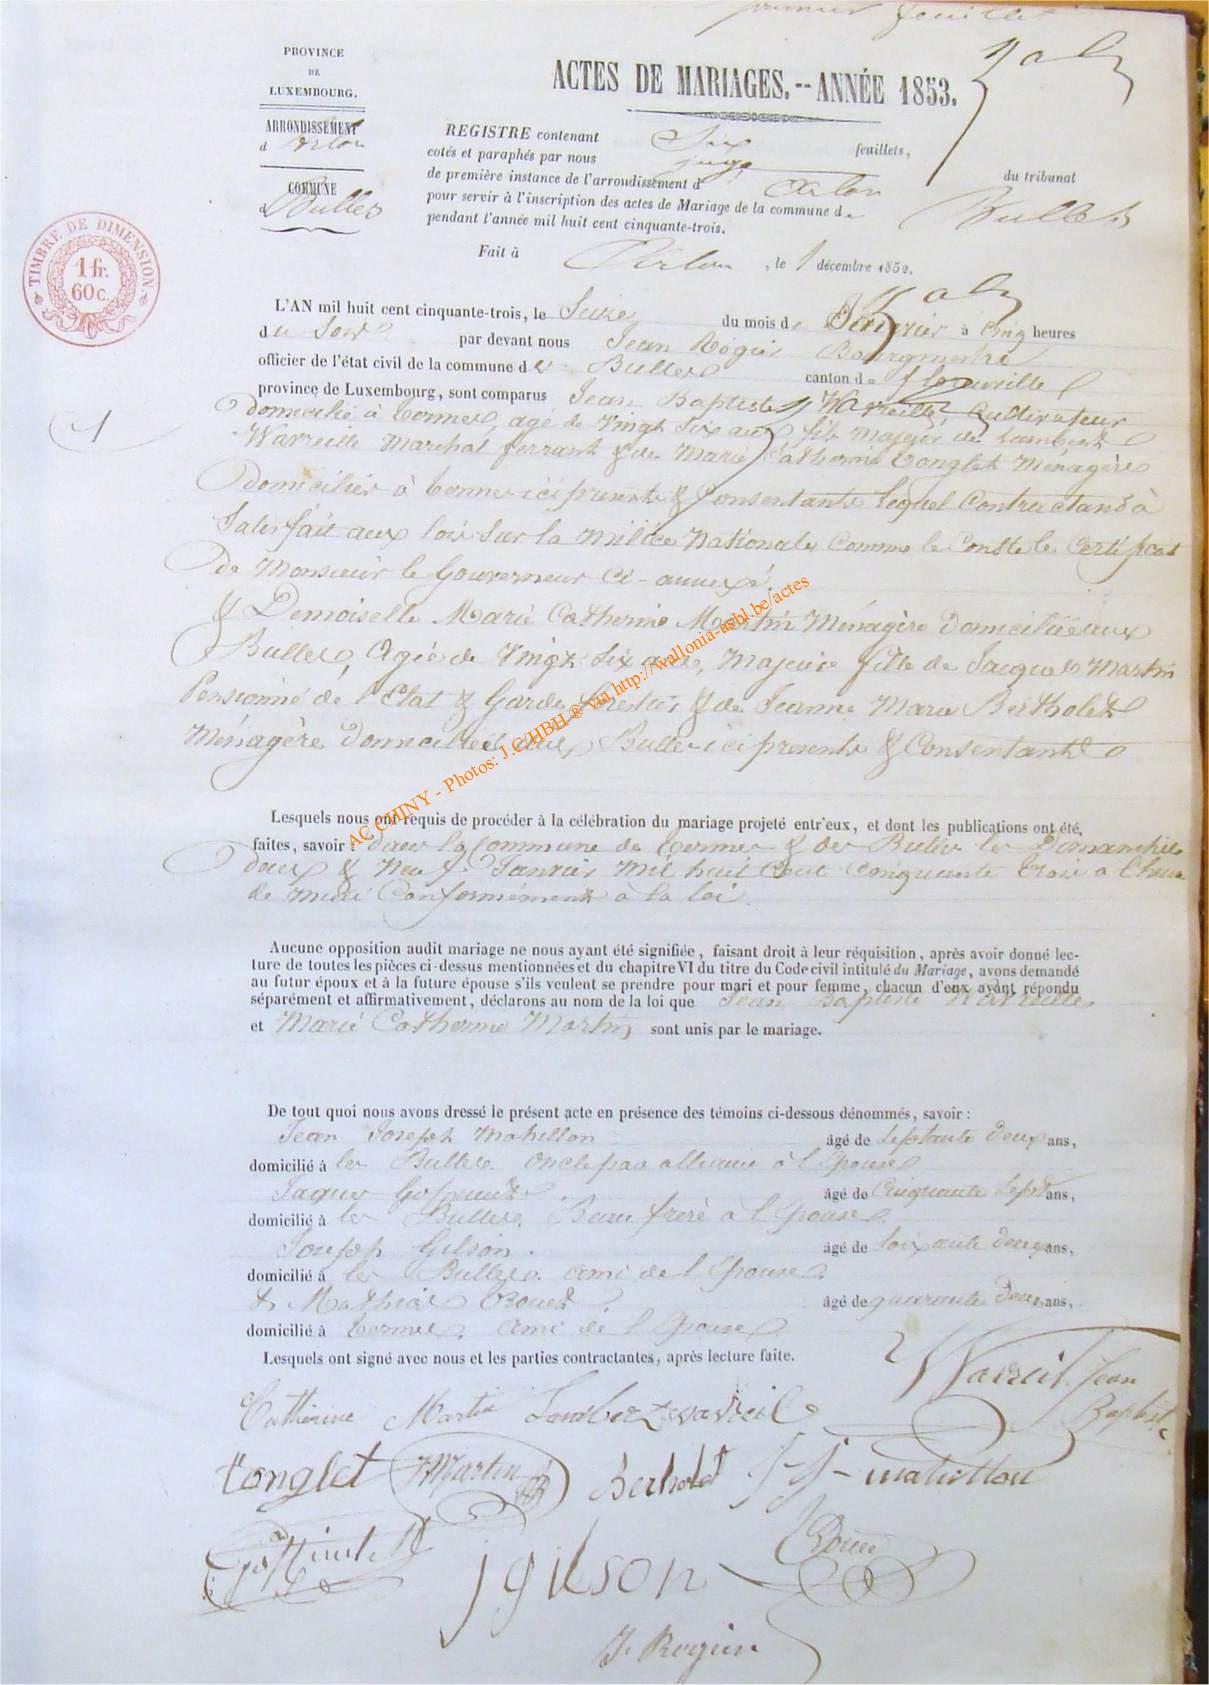 premier feuillet
PROVINCE
DE
LUXEMBOURG.
ARRONDISSEMENT
d'Arlon
COMMUNE
Bulles
TIMBRE DE DIMENSION
1 fr.
60 c.
ACTES DE MARIAGES.--ANNÉE 1853.
REGISTRE contenant Six feuillets,
cotés et paraphés par nous juge du tribunal
de première instance de l'arrondissement d' Arlon
pour servir à l'inscription des actes de Mariage de la commune de Bulles
pendant l'année mil huit cent cinquante-trois.
Fait à Arlon, le 1 décembre 1852.
1
L'AN mil huit cent cinquante-trois, le Seize du mois de Janvier à Cinq heures
du Soir par devant nous Jean Rogier Bourgmestre
officier de l'état civil de la commune de Bulles canton de florenville
province de Luxembourg, sont comparus Jean Baptiste Wavreille, Cultivateur
domicilié à termes, agé de Vingt Six ans, fils Majeur de Lambert
Wavreille Marchal ferrant & de Marie Catherine tonglet Ménagère
domicilier à termes ici présents & Consentants lequel Contractand à
Satisfait aux lois Sur la Milice Nationale Comme le Conste le Certificat
de Monsieur le Gouverneur Ci-annexé.
& Demoiselle Marie Catherine Martin Ménagère domiciliée aux
Bulles, Agée de Vingt Six ans, Majeure fille de Jacques Martin
Pensionné de l'Etat & Garde forestier & de Jeanne Marie Bertholet
Ménagère domiciliés aux Bulles ici présents & Consentants
Lesquels nous ont requis de procéder à la célébration du mariage projeté entr'eux, et dont les publications ont été
faites, savoir: dans la Commune de termes & des Bulles les Dimanches
deux & Neuf Janvier Mil huit Cent Cinquante trois à l'heure
de midi Conformément à la loi.
Aucune opposition audit mariage ne nous ayant été signifiée, faisant droit à leur réquisition, après avoir donné lec-
ture de toutes les pièces ci-dessus mentionnées et du chapitre VI du titre du Code civil intitulé du Mariage, avons demandé
au futur époux et à la future épouse s'ils veulent se prendre pour mari et pour femme, chacun d'eux ayant répondu
séparément et affirmativement, déclarons au nom de la loi que Jean Baptiste Wavreille
et Marie Catherine Martin sont unis par le mariage.
De tout quoi nous avons dressé le présent acte en présence des témoins ci-dessous dénommés, savoir:
Jean Joseph Mahillon âgé de Septante deux ans,
domicilié à les Bulles oncle par alliance à l'Epouse
Jaques âgé de Cinquante Sept ans,
domicilié à les Bulles. Beau frère à l'Epouse
Joseph Gilson. âgé de Soixante deux ans,
domicilié à les Bulles ami de l'Epouse
& Mathias âgé de quarante deux ans,
domicilié à termes. ami de l'Epouse
Lesquels ont signé avec nous et les parties contractantes, après lecture faite.
Wavreil Jean
Baptiste
Catherine Martin Lambert wavreil
tonglet JMartin Berholet J-J-mahillon
j gilson
J. Rogier
AC CHINY - Photos: J.C HBH ® via http://wallonia-asbl.be/actes